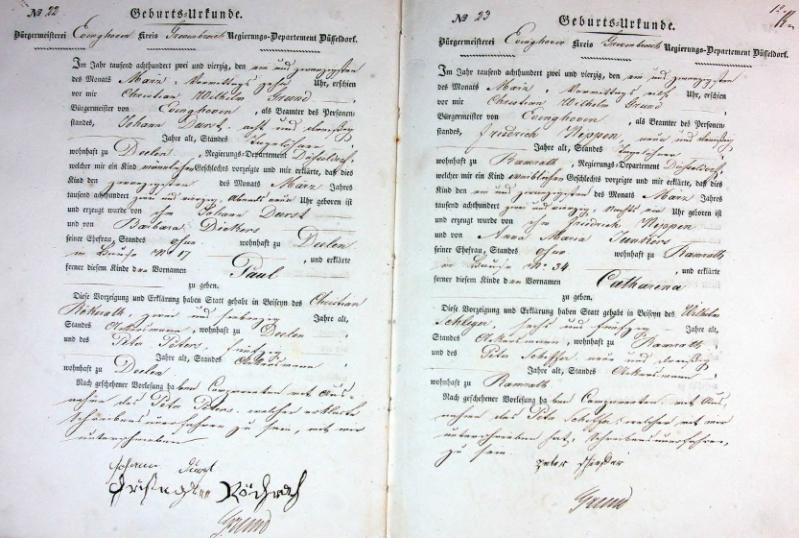 № 22
Geburts-Urkunde.
Bürgermeisterei Evinghoven Kreis Grevenbroich Regierungs-Departement Düsseldorf.
Im Jahr tausend achthundert zwei und vierzig, den ein und zwanzigsten
des Monats März, Vormittags zehn Uhr, erschien
vor mir Christian Wilhelm Grund
Bürgermeister von Evinghoven, als Beamter des Personen-
standes, Johann Durst, acht und dreißig
Jahre alt, Standes Tagelöhner
wohnhaft zu Deelen, Regierungs-Departement Düsseldorf,
welcher mir ein Kind männlichen Geschlechts vorzeigte und mir erklärte, daß dies
Kind den zwanzigsten des Monats März Jahres
tausend achthundert zwei und vierzig, Abends neun Uhr geboren ist
und erzeugt wurde von ihm Johann Durst
und von Barbara Dickers
seiner Ehefrau, Standes ohne wohnhaft zu Deelen
im Hause No 17, und erklärte
ferner diesem Kinde den Vornamen Paul
zu geben.
Diese Vorzeigung und Erklärung haben Statt gehabt in Beiseyn des Christian
zwei und siebenzig Jahre alt,
Standes Ackersmann, wohnhaft zu Deelen
und des Peter Peters, fünfzig
Jahre alt, Standes Ackersmann
wohnhaft zu Deelen
Nach geschehener Vorlesung haben Comparenten mit Aus-
nahme des Peter Peters, welcher erklärte
schreibensunerfahren zu sein, mit mir
unterschrieben
Johann Durst
Grund
№ 23
Geburts-Urkunde.
Bürgermeisterei Evinghoven Kreis Grevenbroich Regierungs-Departement Düsseldorf.
Im Jahr tausend achthundert zwei und vierzig, den ein und zwanzigsten
des Monats März, Vormittags elf Uhr, erschien
vor mir Christian Wilhelm Grund
Bürgermeister von Evinghoven, als Beamter des Personen-
standes, Friedrich Neppen, neun und dreißig
Jahre alt, Standes Tagelöhner
wohnhaft zu Ramrath, Regierungs-Departement Düsseldorf,
welcher mir ein Kind weiblichen Geschlechts vorzeigte und mir erklärte, daß dies
Kind den ein und zwanzigsten des Monats März Jahres
tausend achthundert zwei und vierzig, Nachts ein Uhr geboren ist
und erzeugt wurde von ihm Friedrich Neppen
und von Anna Maria Junkers
seiner Ehefrau, Standes ohne wohnhaft zu Ramrath
im Hause No 34, und erklärte
ferner diesem Kinde den Vornamen Catharina
zu geben.
Diese Vorzeigung und Erklärung haben Statt gehabt in Beiseyn des Wilhelm
sechs und fünfzig Jahre alt,
Standes Ackersmann, wohnhaft zu Ramrath
und des Peter neun und dreißig
Jahre alt, Standes Ackersmann
wohnhaft zu Ramrath
Nach geschehener Vorlesung haben Comparenten mit Aus-
nahme des Peter welcher mit mir
unterschrieben hat, schreibensunerfahren
zu sein
peter
Grund